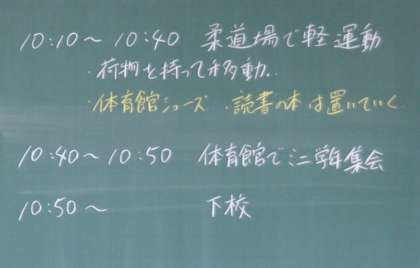 10:10〜10:40 柔道場で軽運動
・荷物を持って移動.
・体育館シューズ ・読書の本は置いていく
10:40〜10:50 体育館でミニ学年集会
10:50〜 下校